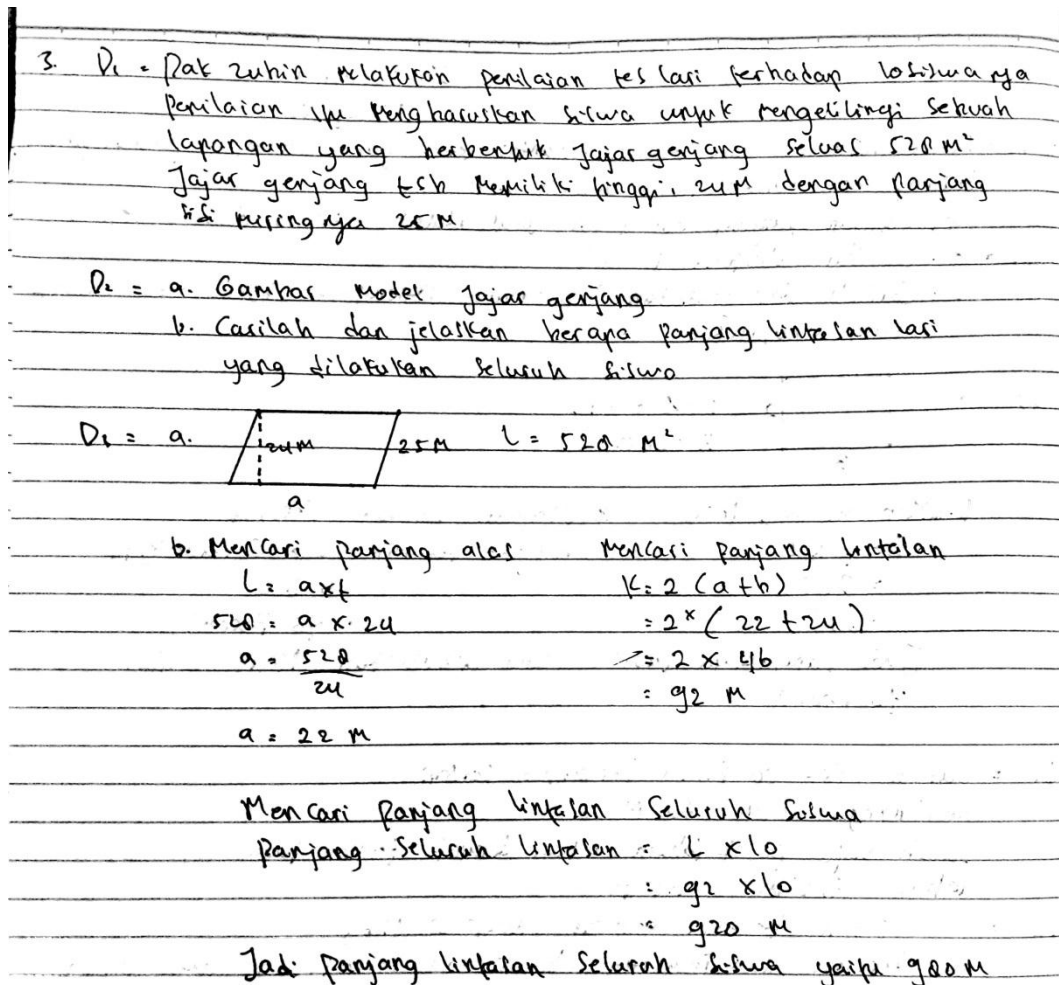 3. D1 = Pak zuhin melakukan penilaian tes lari terhadap 10 siswanya
Penilaian itu mengharuskan siswa untuk mengelilingi sebuah
lapangan yang berbentuk Jajar genjang seluas 528 M²
Jajar genjang tsb memiliki tinggi, 24 M dengan panjang
sisi miringnya 25 M
D2 = a. Gambar model jajar genjang
b. Carilah dan jelaskan berapa panjang lintasan lari
yang dilakukan seluruh siswa
D3 = a. 24M 25M L = 528 M²
a
b. Mencari panjang alas Mencari panjang lintasan
L = a x t K = 2 (a + b)
528 = a x 24 = 2 x (22 + 24)
a = 528 = 2 x 46
24 = 92 M
a = 22 M
Mencari panjang lintasan seluruh siswa
Panjang seluruh lintasan = L x 10
= 92 x 10
= 920 M
Jadi panjang lintasan seluruh siswa yaitu 920 M